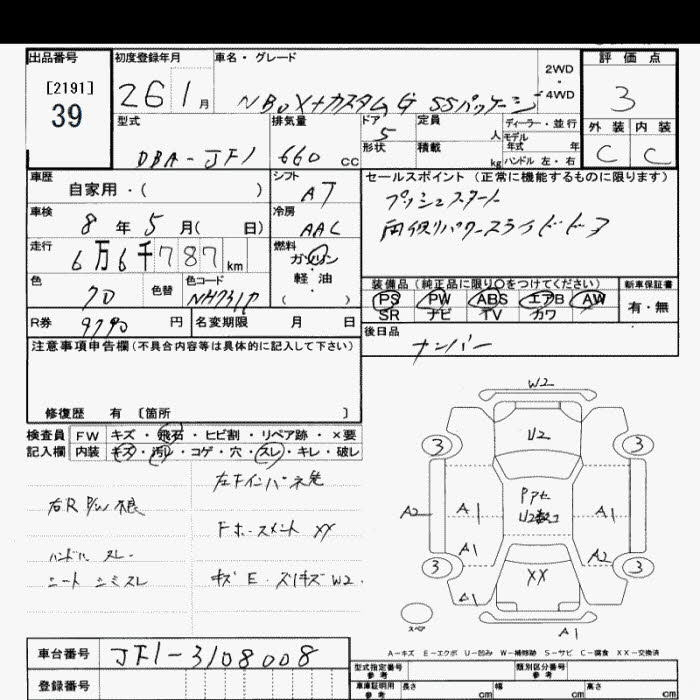 出品番号
[2191]
39
初度登録年月
26 1月
車名・グレード
NBOX+カスタムG SSパッケージ
2WD
・
4WD
評価点
3
外装 内装
C C
型式
DBA-JF1
排気量
660 cc
ドア
5
形状
定員
人
積載
kg
ディーラー・並行
モデル
年式 年
ハンドル 左・右
車歴
自家用・( )
シフト
AT
車検
8年5月( 日)
冷房
AAC
走行
6万6千787km
燃料
ガソリン
軽・油
( )
色
クロ
色替
色コード
NH731P
R券
9790円
名変期限 月 日
セールスポイント(正常に機能するものに限ります)
プッシュスタート
両側パワースライドドア
装備品(純正品に限り○をつけてください)
PS PW ABS エアB AW
SR ナビ TV カワ
新車保証書
有・無
後日品
ナンバー
注意事項申告欄(不具合内容等は具体的に記入して下さい)
修復歴 有〔箇所 〕
検査員
記入欄
FW キズ・飛石・ヒビ割・リペア跡・×要
内装 キズ・汚レ・コゲ・穴・スレ・キレ・破レ
右R P/W
ハンドル スレ
シート シミスレ
左Fインパネ
XX
キズE・スリキズW2
W2
U2
3 3
A2 A1 A1
Pアセ
U2
A1 A2
3 3
XX
A1
スペア
A1
A-キズ E-エクボ U-凹み W-補修跡 S-サビ C-腐食 XX-交換済
車台番号
JF1-3108008
登録番号
型式指定番号
参考
類別区分番号
参考
車庫証明用
参考
長さ cm 幅 cm 高さ cm